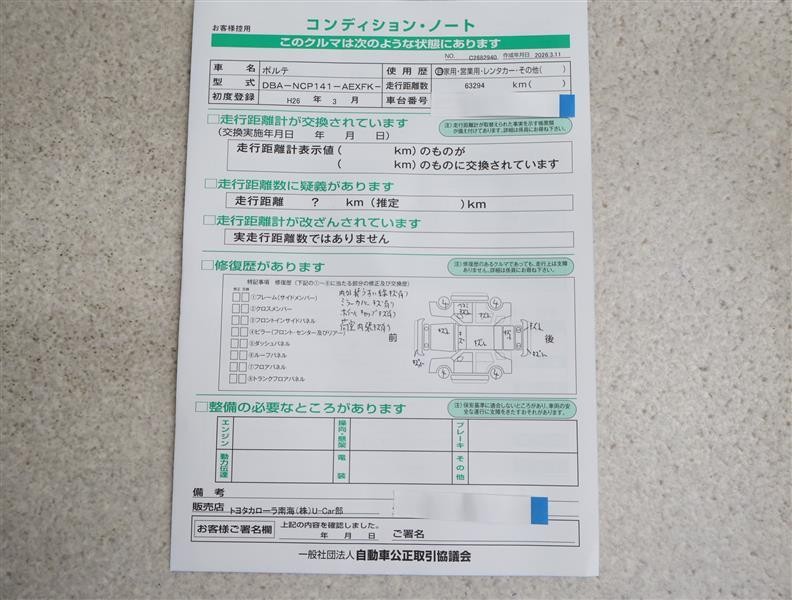 お客様控用
コンディション・ノート
このクルマは次のような状態にあります
NO. C2682940 作成年月日 2026.3.11
車名 ポルテ 使用歴 自家用・営業用・レンタカー・その他( )
型式 DBA-NCP141-AEXFK- 走行距離数 63294 km( )
初度登録 H26 年 3 月 車台番号
□走行距離計が交換されています
注)走行距離計が取替えられた事実を示す帳票類が備え付けてあります。詳細は係員にお尋ね下さい。
(交換実施年月日 年 月 日)
走行距離計表示値( km)のものが
( km)のものに交換されています
□走行距離数に疑義があります
走行距離 ? km(推定 )km
□走行距離計が改ざんされています
実走行距離数ではありません
□修復歴があります
注)修復歴のあるクルマであっても、走行上は支障ありません。詳細は係員にお尋ね下さい。
特記事項 修復歴(下記の①〜⑧に当たる部分の修正及び交換歴)
修正 交換
①フレーム(サイドメンバー)
②クロスメンバー
③フロントインサイドパネル
④ピラー(フロント・センター及びリアー)
⑤ダッシュパネル
⑥ルーフパネル
⑦フロアパネル
⑧トランクフロアパネル
内外装うすい線キズ有り
ミラーカバーキズ有り
ホイールキャップキズ有り
荷室内張キズ有り
前
後
□整備の必要なところがあります
注)保安基準に適合しないところがあり、車両の安全な運行に支障をきたすおそれがあります。
エンジン
操向・懸架
ブレーキ
動力伝達
電装
その他
備考
販売店 トヨタカローラ南海(株)U-Car部
お客様ご署名欄 上記の内容を確認しました。
年 月 日 ご署名
一般社団法人 自動車公正取引協議会